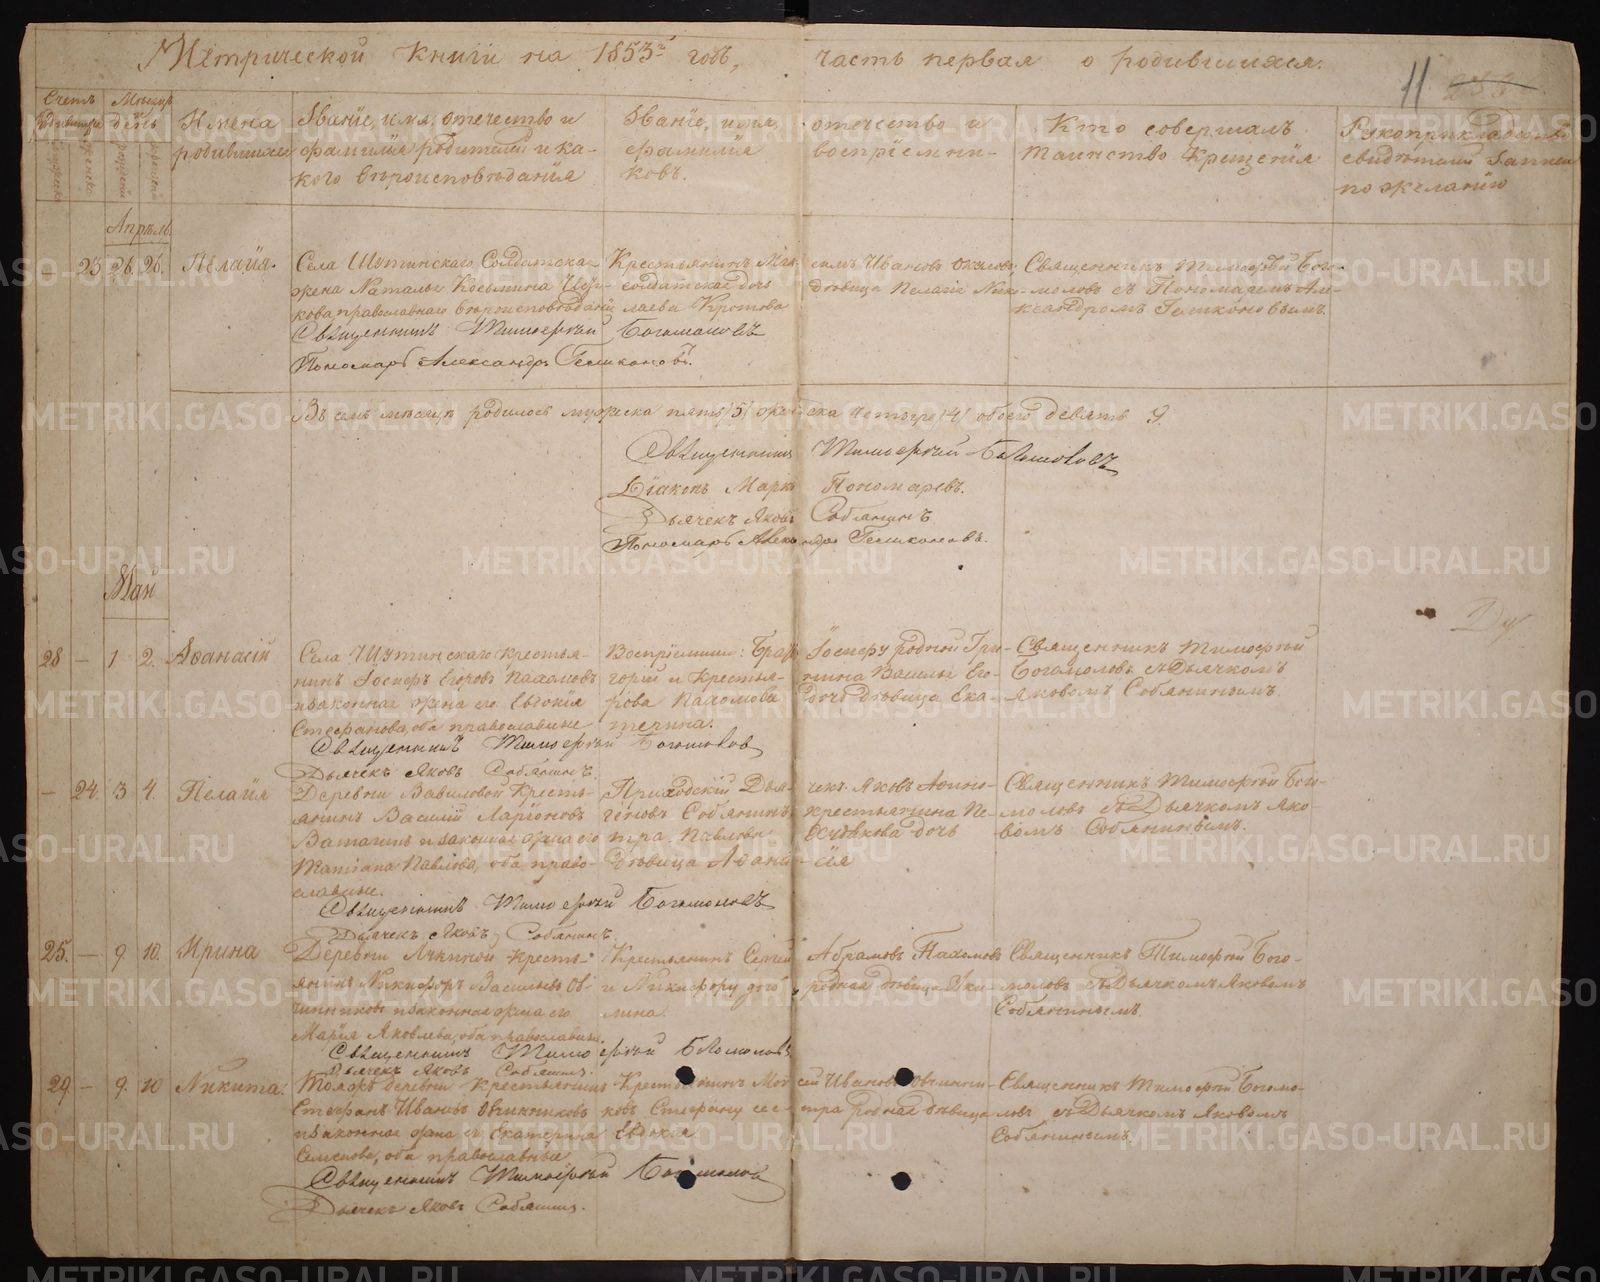 Метрической книги на 1853й годъ, часть первая о родившихся.
11
Счетъ родившихся
Мѣсяцъ день
Имена родившихся
Званіе, имя, отечество и фамилія родителей и какого вѣроисповѣданія
Званіе, имя, отечество и фамилія воспріемниковъ.
Кто совершалъ таинство крещенія
Рукоприкладство свидѣтелей записи по желанію
Апрѣль
— 23 26. 26. Пелагія.
Села Шутинскаго Солдатская
жена Наталья Косьмина
православнаго вѣроисповѣданія
Крестьянинъ Максимъ Ивановъ
солдатская дочь дѣвица Пелагія Николаева Кротова
Священникъ Тимоѳей Богомоловъ съ Пономаремъ Александромъ Геликоновымъ.
Священникъ Тимоѳей Богомоловъ
Пономарь Александръ Геликоновъ.
Въ семъ мѣсяцѣ родилось мужеска пять /5/ женска четыре /4/ обоего девять 9.
Священникъ Тимоѳей Богомоловъ
Діаконъ Марко Пономаревъ.
Дьячекъ Яковъ Собянинъ
Пономарь Александръ Геликоновъ.
Май
28 — 1 2. Аѳанасій
Села Шутинскаго крестьянинъ Іосифъ Егоровъ Пахомовъ
и законная жена его Евгенія
Стефанова, оба православные
Воспріемники: Іосифу родной Григорій и Крестьянина Василья Егорова Пахомова дочь дѣвица Екатерина.
Священникъ Тимоѳей Богомоловъ съ Дьячкомъ Яковомъ Собянинымъ.
Священникъ Тимоѳей Богомоловъ
Дьячекъ Яковъ Собянинъ.
— 24. 3 4. Пелагія
Деревни Вавиловой Крестьянинъ Василій Ларіоновъ
Ватагинъ и законная жена его
Татіана Павлова, оба православные.
Приходскій Дьячекъ Яковъ Собянинъ крестьянина Петра Павлова дочь дѣвица
Священникъ Тимоѳей Богомоловъ съ Дьячкомъ Яковомъ Собянинымъ.
Священникъ Тимоѳей Богомоловъ
Дьячекъ Яковъ Собянинъ.
25. — 9. 10. Ирина
Деревни Крестьянинъ Никифоръ Васильевъ Овчинниковъ и законная жена его
Марія Яковлева, оба православные.
Крестьянинъ Сергей Абрамовъ Пахомовъ
и Никифору дочь родная дѣвица
Священникъ Тимоѳей Богомоловъ съ Дьячкомъ Яковомъ Собянинымъ.
Священникъ Тимоѳей Богомоловъ
Дьячекъ Яковъ Собянинъ.
29 — 9. 10 Никита.
Тояжъ деревни Крестьянинъ
Стефанъ Ивановъ Овчинниковъ
и законная жена его Екатерина
Семенова, оба православные
Крестьянинъ Моисей Ивановъ Овчинниковъ Стефану сестра родная дѣвица Евдокія
Священникъ Тимоѳей Богомоловъ съ Дьячкомъ Яковомъ Собянинымъ.
Священникъ Тимоѳей Богомоловъ
Дьячекъ Яковъ Собянинъ.
METRIKI.GASO-URAL.RU